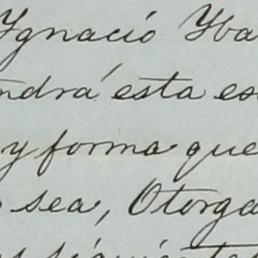 Ygnació Yba
ndrá esta es
y forma que
sea, Otorga